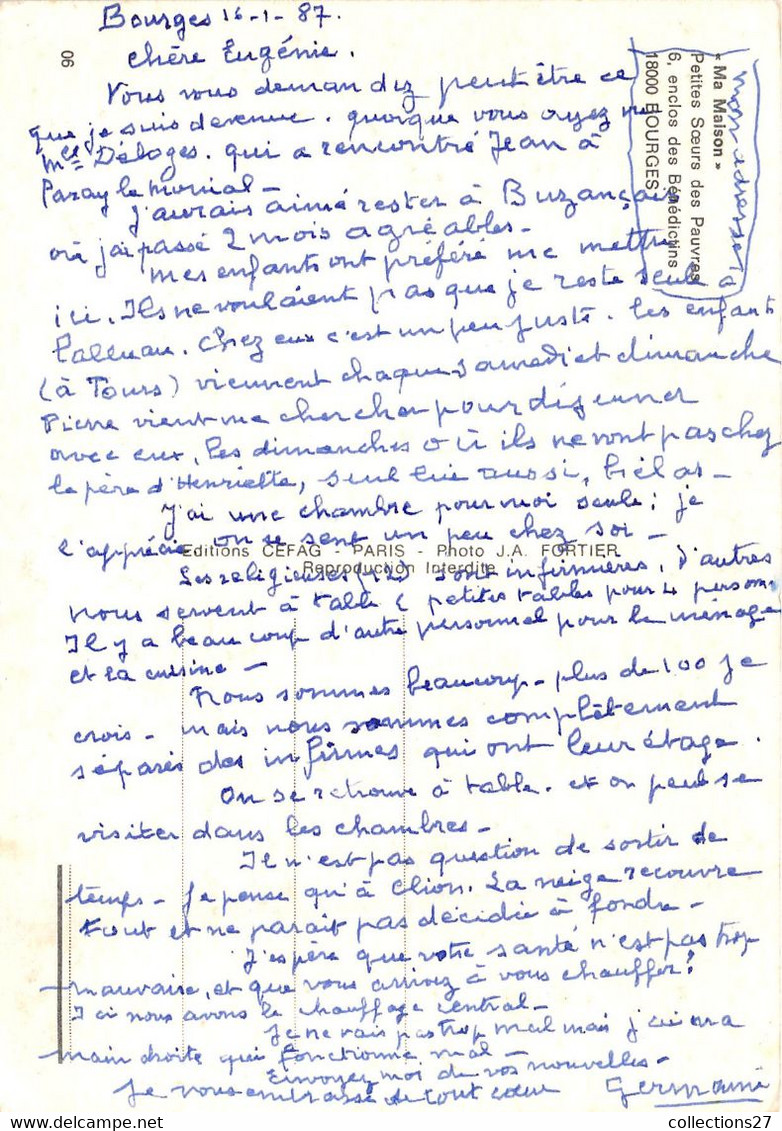 Bourges 16-1-87.
chère Eugénie.
Vous vous demandez peut être ce
que je suis devenue. quoique vous ayez vu
Mce Déloges. qui a rencontré Jean à
Paray le monial -
J'aurais aimé rester à Buzançais
où j'ai passé 2 mois agréables -
Mes enfants ont préféré me mettre
ici. Ils ne voulaient pas que je reste seule à
Palluau. Chez eux c'est un peu juste. les enfants
(à Tours) viennent chaque samedi et dimanche
Pierre vient me chercher pour déjeuner
avec eux, les dimanches où ils ne vont pas chez
le père d'Henriette, seul lui aussi, hélas -
J'ai une chambre pour moi seule ; je
l'apprécie on se sent un peu chez soi -
Editions CEFAG - PARIS - Photo J.A. FORTIER
Reproduction Interdite
Les religieuses (12) sont infirmières, d'autres
nous servent à table ( petites tables pour 4 person
Il y a beaucoup d'autre personnel pour le ménage
et la cuisine -
Nous sommes beaucoup - plus de 100 je
crois - mais nous sommes complètement
séparés des infirmes qui ont leur étage.
On se retrouve à table. et on peut se
visiter dans les chambres -
Il n'est pas question de sortir ce
temps - Je pense qu'à Clion. La neige recouvre
tout et ne parait pas décidée à fondre -
J'espère que votre santé n'est pas trop
mauvaise, et que vous arrivez à vous chauffer!
Ici nous avons le chauffage central -
Je ne vais pas trop mal mais j'ai ma
main droite qui fonctionne mal -
Envoyez moi de vos nouvelles -
Je vous embrasse de tout cœur Germaine
mon adresse
« Ma Maison »
Petites Sœurs des Pauvres
6, enclos des Bénédictins
18000 BOURGES
06
collections27